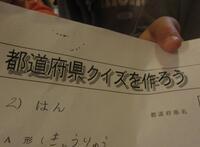 都道府県クイズを作ろう
2) はん
都道府県名
A 形 しきゅうりゅう